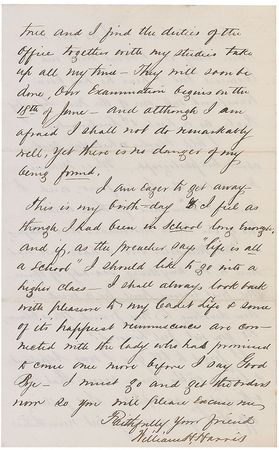 true and I find the duties of the
Office together with my studies take
up all my time – They will soon be
done, Our Examination begins on the
18th of June – and although I am
afraid I shall not do remarkably
well, yet there is no danger of my
being found.
I am eager to get away –
This is my birth-day & I feel as
though I had been in School long enough,
and if, as the preacher says "life is all
a School" I should like to go into a
higher class – I shall always look back
with pleasure to my Cadet Life & some
of its happiest reminiscences are con-
nected with the lady who had promised
to come once more before I say Good
Bye – I must go and get the orders
now so you will please excuse me
Faithfully your friend
William H. Harris